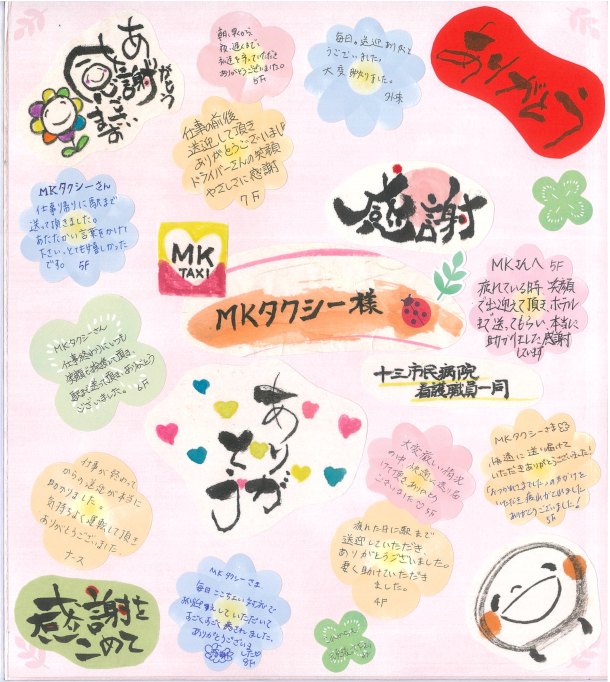 ありがとう
感謝
ございます
朝、早くから
夜、遅くまで、
私達を守っていただき
ありがとうございました。
5F
毎日。送迎ありがと
うございました。
大変助かりました。
外来
ありがとう
仕事の前後
送迎して頂き
ありがとうございました
ドライバーさんの笑顔
やさしさに感謝
7F
MKタクシーさん
仕事帰りに駅まで
送って頂きました。
あたたかい言葉をかけて
下さい、とても嬉しかった
です。 5F
感謝
MK
TAXI
MKタクシー様
MKさんへ 5F
疲れている時 笑顔
で出迎えて頂き、ホテル
まで送ってもらい、本当に
助かりました 感謝
しています
MKタクシーさん
仕事終わりにいつも
笑顔で挨拶して頂き、
駅まで送って頂き、ありがとう
ございました。 6F
十三市民病院
看護職員一同
ありがとう
大変厳しい状況
の中
頂きありがとう
ございました 5F
MKタクシーさま
快適に送り届けて
いただきありがとうございました!
「おつかれさまでした」のまがけを
いただき疲れがとれました
ありがとうございました!
5F
仕事が終わって
からの送迎が本当に
助かりました。
気持ちよく運転して頂き
ありがとうございました
ナス
疲れた日に駅まで
送迎していただき、
ありがとうございました。
凄く助けていただき
ました。
4F
感謝を
こめて
MKタクシーさま
毎日ここちよい
お出迎えしていただいて
すごくすごく癒されました。
ありがとうございま
した
感謝 8F